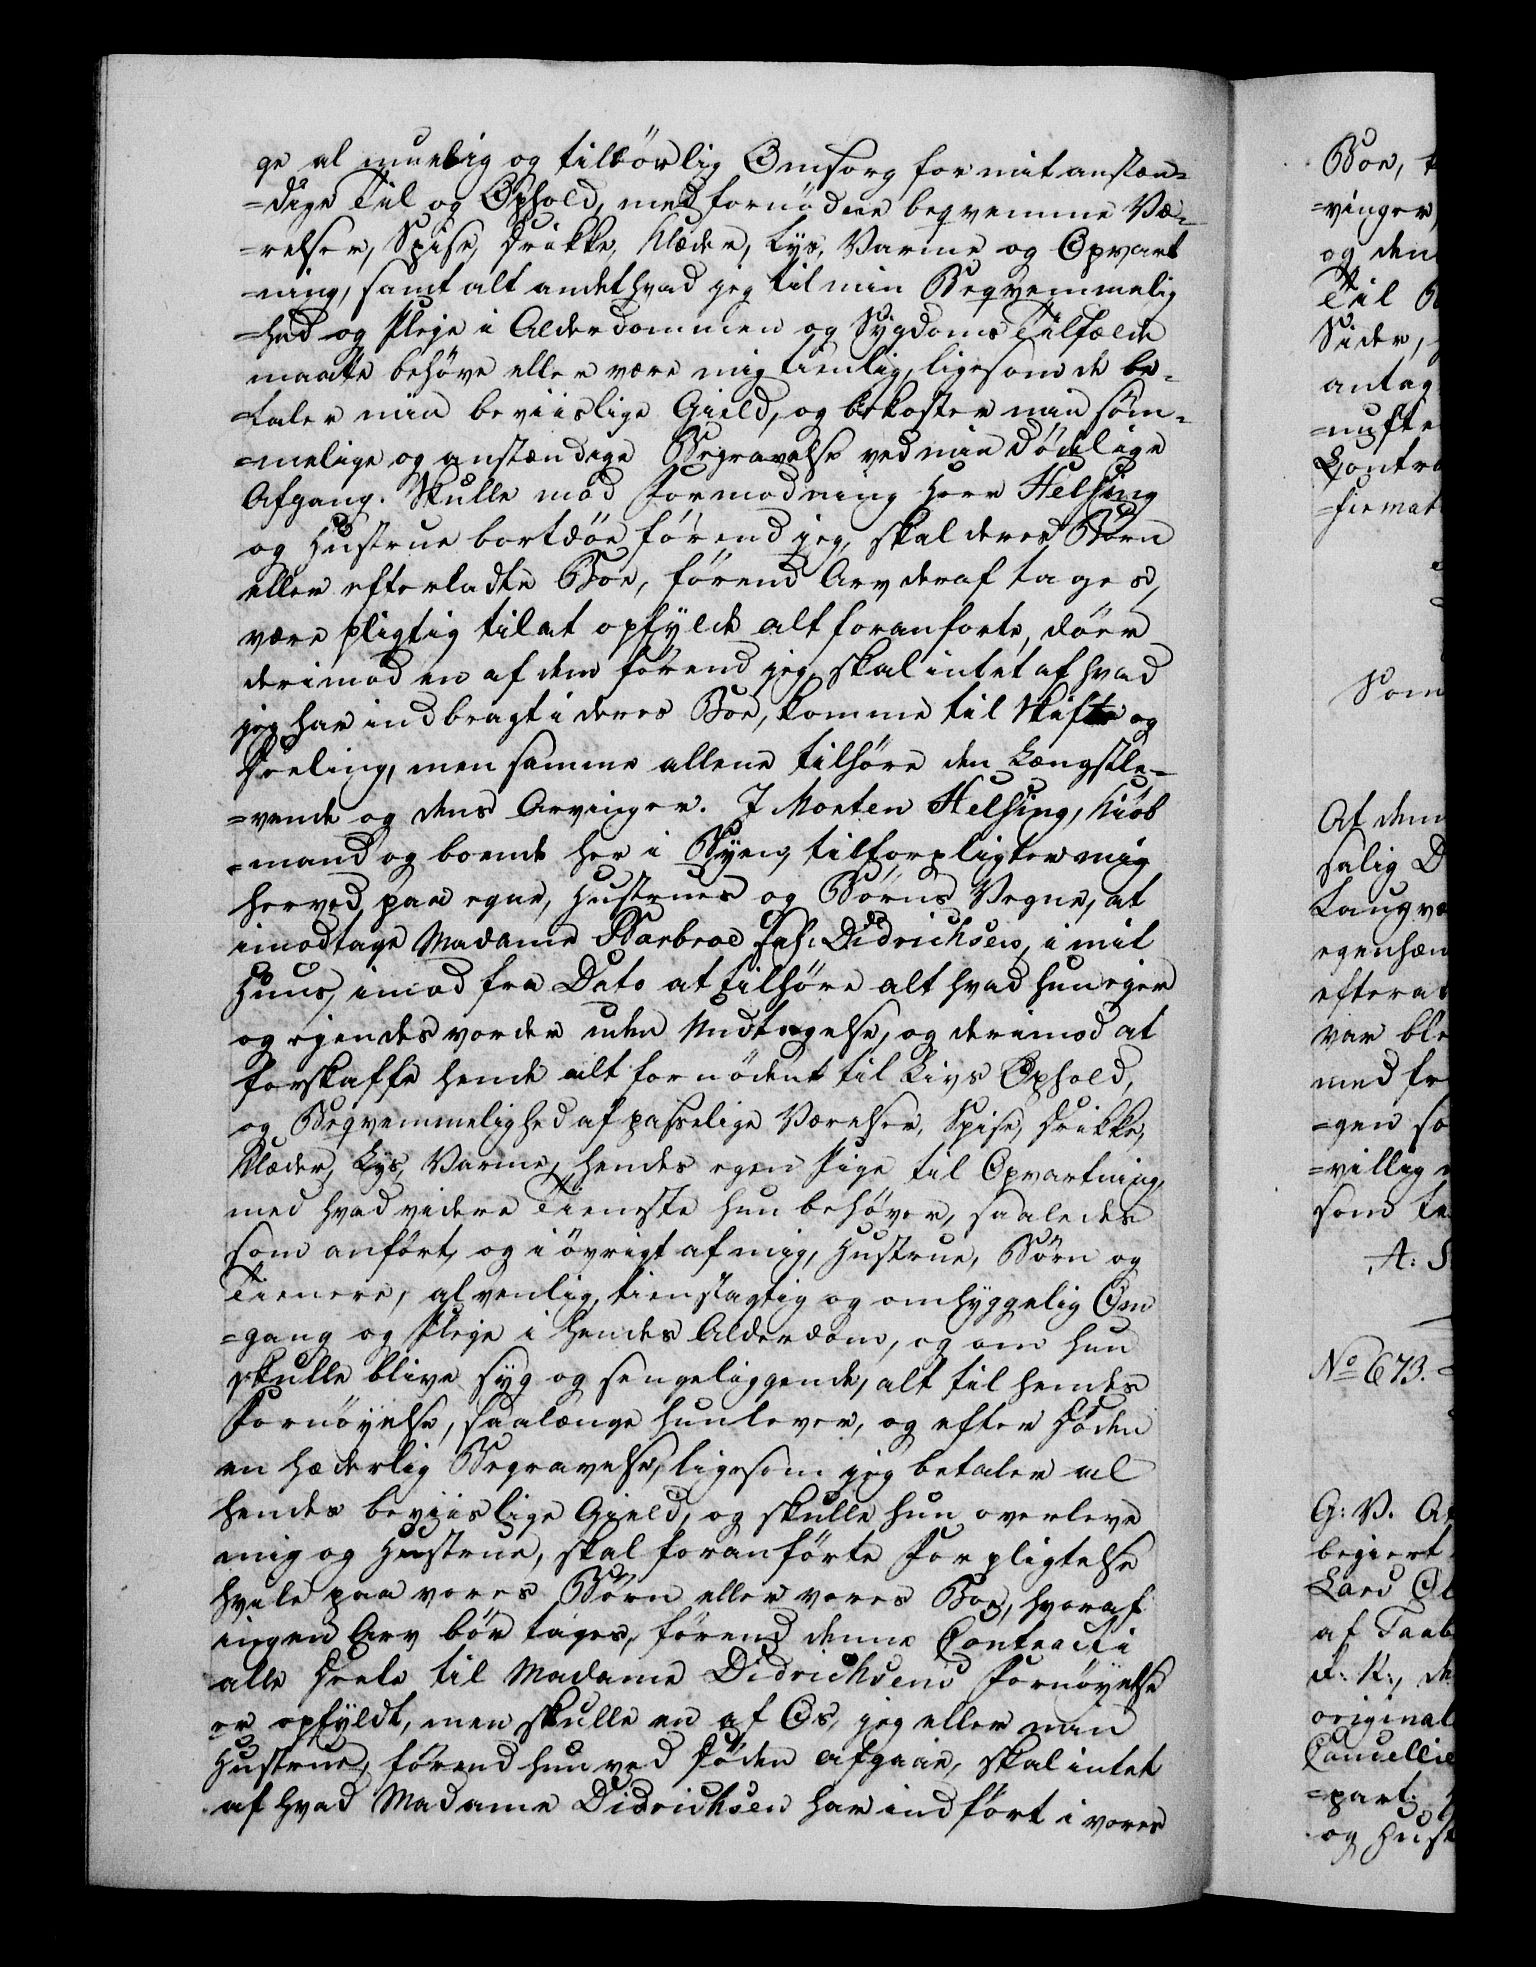 ge al muelig og tilbørlig Omsorg for mit anstæn¬
=dige Til og Ophold, med fornødne beqvemme Væ¬
=relser, Spise, Drikke, Klæder, Lys, Varme og Opvart
=ning, samt alt andet hvad jeg til min Beqvemmelig
=hed og Pleje i Alderdommen og Sygdoms Tilfælde
maatte behøve eller være mig tienlig, ligesom de be¬
=taler min beviislige Gield, og bekoster min søm¬
=melige og anstændige Begravelse ved min dødelige
Afgang. Skulle mod Formodning Herr Helsing
og Hustrue bortdøe førend jeg, skal deres Børn
eller efterladte Boe, førend Arv deraf tages,
være pligtig til at opfylde alt foranførte, døer
derimod en af dem førend jeg, skal intet af hvad
jeg har indbragt i deres Boe, komme til Skifte og
Deeling, men samme allene tilhøre den Længstle¬
=vende og dens Arvinger. I Morten Helsing, Kiøb
=mand og boende her i Byen, tilforpligter mig
herved paa egne, Hustrues og Børns Vegne, at
imodtage Madame Barbroe Sah: Didrichsen, i mit
Huus, imod fra Dato at tilhøre alt hvad hun ejer
og ejendes vorder uden Undtagelse, og derimod at
forskaffe hende alt fornødent til Livs Ophold,
og Beqvemmelighed af passelige Værelser, Spise, Drikke,
Klæder, Lys, Varme, hendes egen Pige til Opvartning,
med hvad videre Tieneste hun behøver, saaledes
som anført, og i øvrigt af mig, Hustrue, Børn og
Tienere, al venlig, tienstagtig og omhyggelig Om
=gang og Pleje i hendes Alderdom, og om hun
skulle blive syg og sengeliggende, alt til hendes
Fornøyelse, saalænge hun lever, og efter Døden
en hæderlig Begravelse, ligesom jeg betaler al
hendes beviislige Gield, og skulle hun overleve
mig og Hustrue, skal foranførte Forpligtelse
hvile paa vores Børn eller vores Boe, hvoraf
ingen Arv bør tages, førend denne Contract i
alle Deele til Madame Didrichsens Fornøyelse
er opfyldt, men skulle en af Os, jeg eller min
Hustrue, førend hun ved Døden afgaae, skal intet
af hvad Madame Didrichsen har indført i vores
Boe,
=vinger,
og den
Til
Sider,
antag
=nufte
Contra
=firmat
Som
Af dem
salig D
Laugvæ
egenhæn
eftera
var ble
med fr
=gen so
=villig
som te
A: S
No 673.
G: V. A
begiert
Lars Ol
af Taab
d: K:, de
original
Cancellie
=part:
og Hust